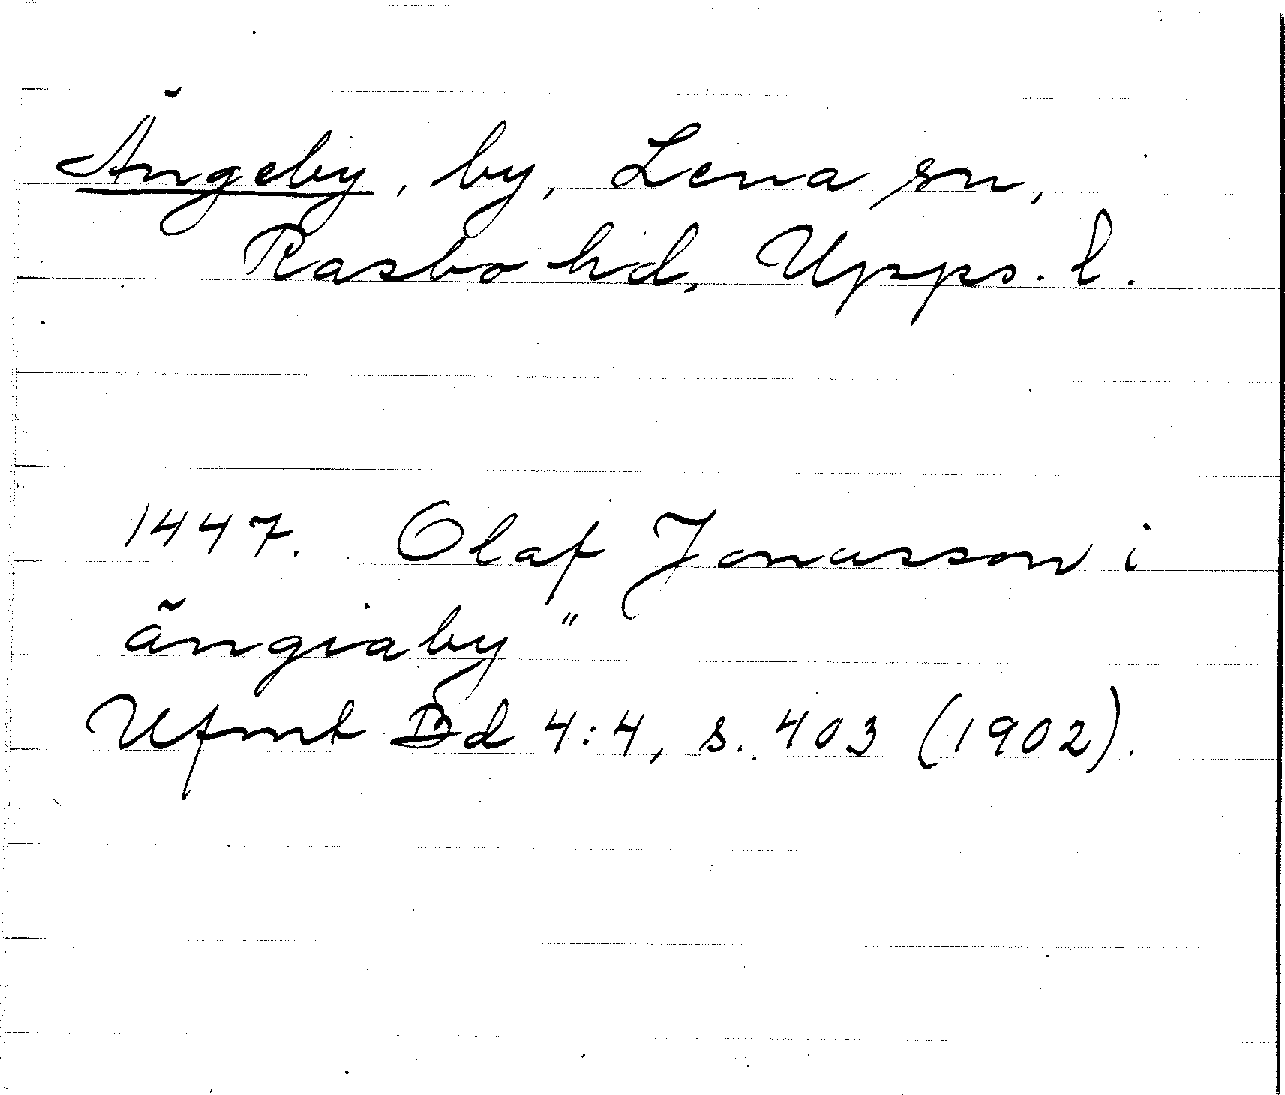 Ängeby, by, Lena sn,
Rasbo hd, Upps. l.
1447. Olaf Jonusson i
ängiaby"
Ufmt Bd 4:4, s. 403 (1902).